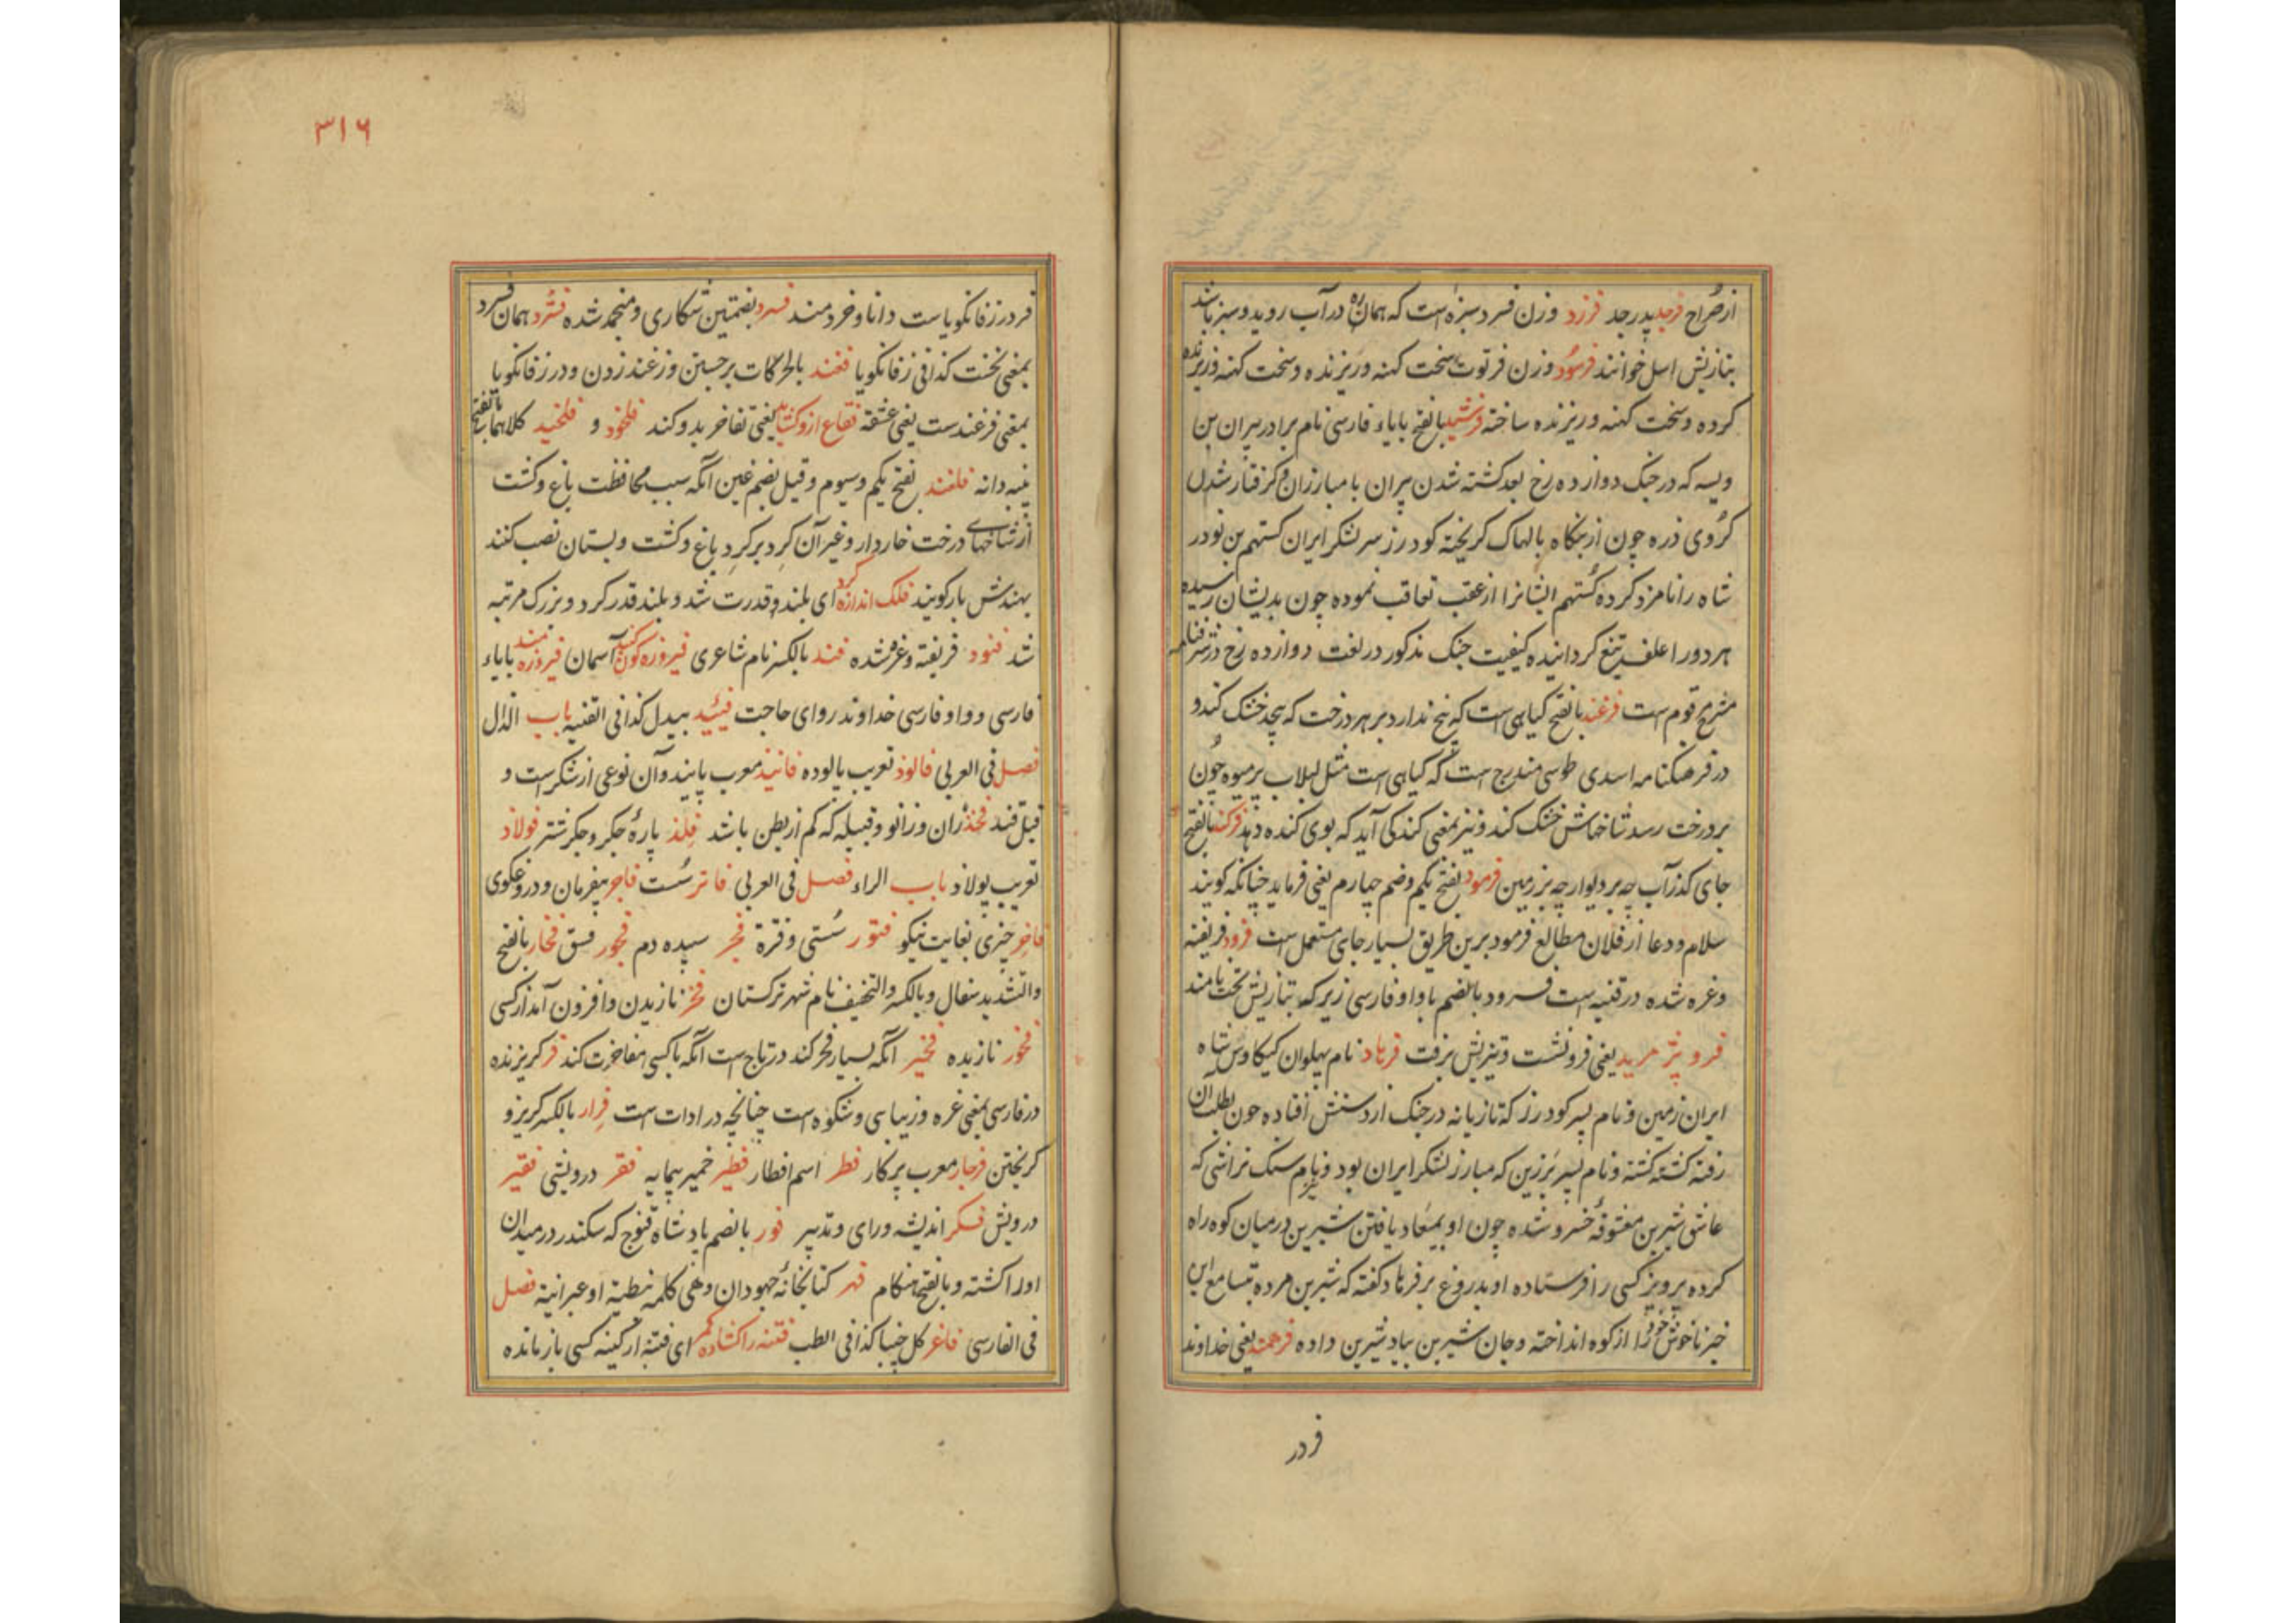 از صراح فرجد پدر جد فرزد وزن فسرد سبزه است که همان ره در آب روید و سبز باشد
بتازیش اسل خوانند فرسود وزن فرتوت سخت کهنه و ریزنده و سخت کهنه و ریزنده
کرده و سخت کهنه و ریزنده ساخته فرشید بالفتح بایاء فارسی نام برادر پیران بن
ویسه که در جنک دوازده رخ بعد کشته شدن پیران با مبارزان و کرفتار شدن
کروی زره چون از بنکاه با لهاک کریخته کودرز سر لشکر ایران کستهم بن نودر
شاه را نامزد کرده کستهم ایشانرا از عقب تعاقب نموده چون بدیشان رسیده
هر دو را علف تیغ کردانیده کیفیت جنک مذکور در لغت دوازده رخ در شرفنامه
مشرح مرقوم است فرغند بالفتح کیاهی است که بیخ ندارد بر هر درخت که پیچد خشک کند و
در فرهنکنامه اسدی طوسی مندرج است که کیاهی است مثل لبلاب بر میوه چون
بر درخت رسد شاخهاش خشک کند و نیز بمعنی کندکی آید که بوی کنده دهد فرکند بالفتح
جای کذر آب چه بر دیوار چه بر زمین فرمود بفتح یکم و ضم چهارم یعنی فرماید چنانکه کویند
سلام و دعا از فلان مطالع فرمود برین طریق بسیار جای مستعمل است فرود فریفته
و غره شده در قنیه است فسرود بالضم با واو فارسی زیر که بتازیش تحت نامند
فرو پر مرید یعنی فرو نشست و تیزیش برفت فرهاد نام پهلوان کیکاوس شاه
ایران زمین و نام پسر کودرز که تازیانه در جنک از دستش افتاده چون بطلب آن
رفته کشته کشته و نام پسر برزین که مبارز لشکر ایران بود و نیز نام سنک تراشی که
عاشق شیرین معشوقه خسرو شده چون او بمیعاد یافتن شیرین در میان کوه راه
کرده پرویز کسی را فرستاده او بدروغ بر فرهاد کفته که شیرین مرده بتسامع این
خبر ناخوش خود را از کوه انداخته و جان شیرین بیاد شیرین داده فرهمند یعنی خداوند
فردر
٣١٦
فردر زفانکویاست دانا و خردمند فسرد بضمتین شکاری و منجمد شده فسرد همان فسرد
بمعنی نخست کذا فی زفانکویا فغند بالحرکات برجستن و زغند زدن و در زفانکویا
بمعنی فرغندست یعنی عشقه فقاع از و کشاید یعنی تفاخر بدو کند فلخود و فلخید کلاهما بالفتح
پنبه دانه فلغند بفتح یکم و سیوم و قیل بضم غین آنکه سبب محافظت باغ و کشت
از شاخهای درخت خاردار و غیر آن کرد بر کرد باغ و کشت و بستان نصب کنند
بهندش بار کویند فلک اندازه کرد ای بلند و قدرت شد و بلند قدر کرد و بزرک مرتبه
شد فنود فریفته و غره شده فند بالکسر نام شاعری فیروزه کون کنبد آسمان فیروزه مند بایاء
فارسی و واو فارسی خداوند روای حاجت فیئید بیدل کذا فی القنیه باب الذال
فصل فی العربی فالوذ تعریب پالوده فانیذ معرب پانید و آن نوعی از شکر است و
قیل قند فخذ ران و زانو و قبیله که کم از بطن باشد فلذ پارهٔ جکر و جکر شتر فولاذ
تعریب پولاد باب الراء فصل فی العربی فاتر سست فاجر بیفرمان و دروغکوی
فاخر چیزی بغایت نیکو فتور سستی و فترة فجر سپیده دم فجور فسق فخار بالفتح
و التشدید سفال و بالکسر و التخفیف نام شهر ترکستان فخر نازیدن و افزون آمد از کسی
فخور نازیده فخیر آنکه بسیار فخر کند در تاج است آنکه با کسی مفاخرت کند فر کریزنده
در فارسی بمعنی غره و زیبایی و شکوه است چنانچه در ادات است فرار بالکسر کریز و
کریختن فرجار معرب پرکار فطر اسم افطار فطیر خمیر بیمایه فقر درویشی فقیر
درویش فکر اندیشه و رای و تدبیر فور بالضم پادشاه قنوج که سکندر در میدان
او را کشته و بالفتح هنکام فهر کتابخانهٔ جهودان و هی کلمة نبطیة او عبرانیة فصل
فی الفارسی فاغر کل چنپا کذا فی الطب فتنه را کشاده کمر ای فتنه از کینه کسی باز مانده